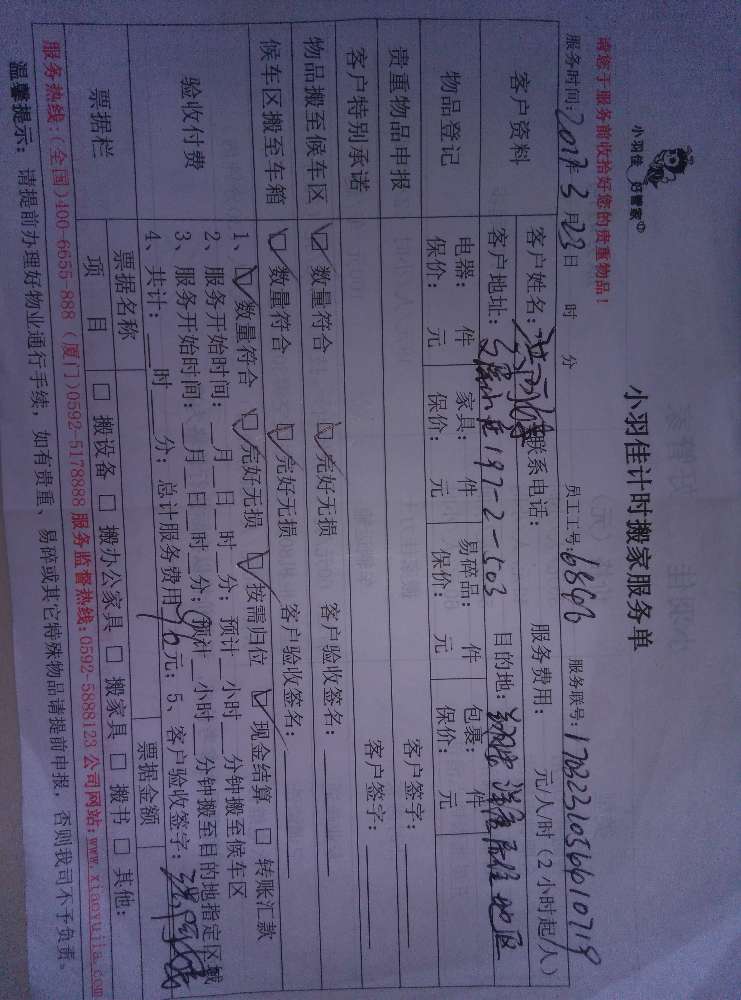 小羽佳 好管家
小羽佳计时搬家服务单
请您于服务前收拾好您的贵重物品！
服务时间: 2017年 3 月 23日 时 分 员工工号: 服务联号: 1703231056610719
客户资料
客户姓名: 联系电话: 服务费用: 元/人/时(2小时起/人)
客户地址: 197-2-503 目的地:
物品登记
电器: 件 家具: 件 易碎品: 件 包裹: 件
保价: 元 保价: 元 保价: 元 保价: 元
贵重物品申报 客户签字:
客户特别承诺 客户签字:
物品搬至候车区 ☑ 数量符合 ☑ 完好无损 客户验收签名:
候车区搬至车箱 ☑ 数量符合 ☑ 完好无损 客户验收签名:
验收付费
1、☑ 数量符合 ☑ 完好无损 ☑ 按需归位 ☑ 现金结算 □ 转账汇款
2、服务开始时间: 月 日 时 分; 预计 小时 分钟搬至候车区
3、服务开始时间: 月 日 时 分; 预计 小时 分钟搬至目的地指定区域
4、共计: 时 分; 总计服务费用 元; 5、客户验收签字:
票据栏
票据名称 票据金额
项 目 □ 搬设备 □ 搬办公家具 □ 搬家具 □ 搬书 □ 其他:
服务热线:(全国)400-6655-888 (厦门)0592-5178888 服务监督热线:0592-5888123 公司网站:www.xiaoyujia.com
温馨提示: 请提前办理好物业通行手续，如有贵重、易碎或其它特殊物品请提前申报，否则我司不予负责。